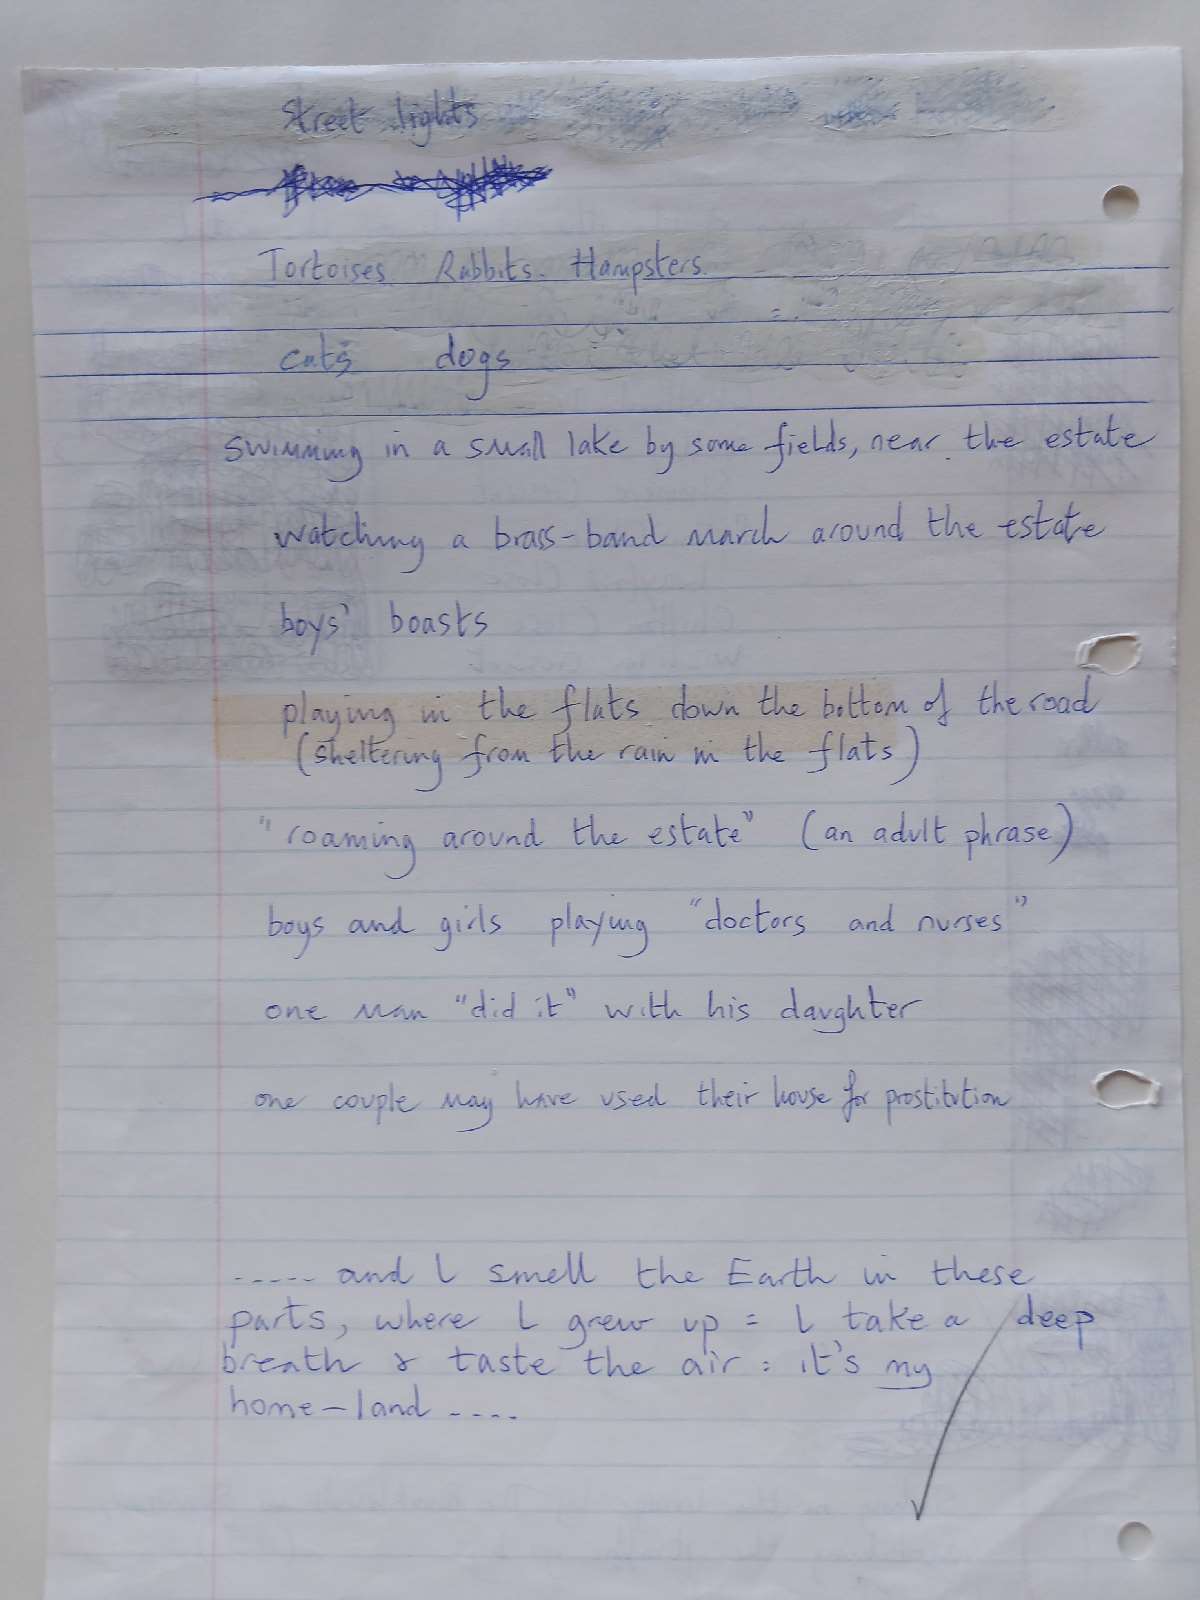 Street lights
Tortoises. Rabbits. Hampsters.
cats dogs
swimming in a small lake by some fields, near the estate
watching a brass-band march around the estate
boys' boasts
playing in the flats down the bottom of the road
(sheltering from the rain in the flats)
"roaming around the estate" (an adult phrase)
boys and girls playing "doctors and nurses"
one man "did it" with his daughter
one couple may have used their house for prostitution
..... and I smell the Earth in these
parts, where I grew up = I take a deep
breath & taste the air : it's my
home-land ....